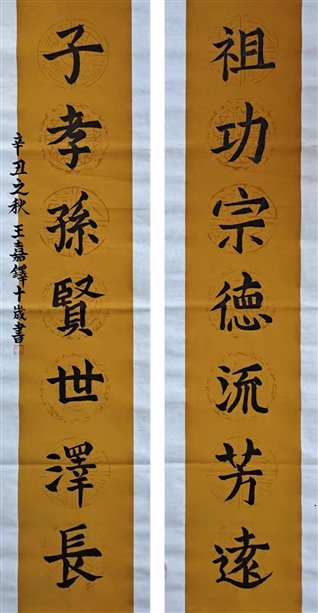 祖功宗德流芳遠
子孝孫賢世澤長
辛丑之秋 王嘉鐸十歲書